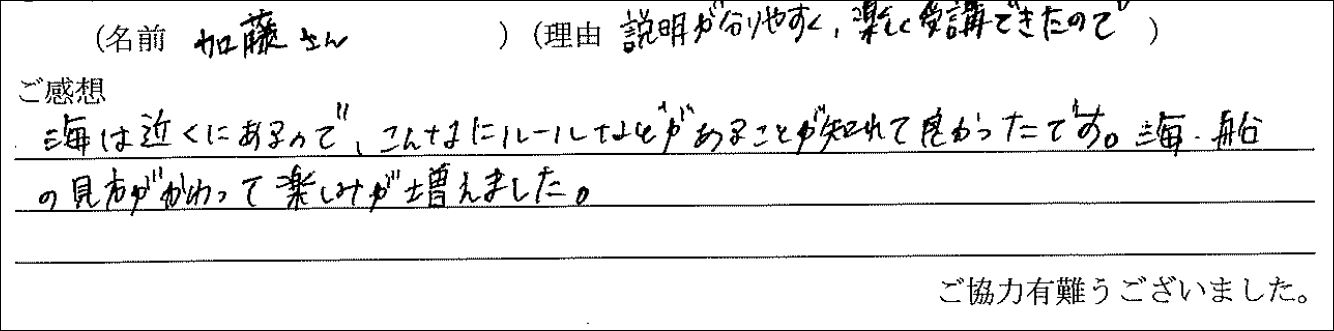 (名前 加藤さん ) (理由 説明が分りやすく、楽しく受講できたので )
ご感想
海は近くにあるので、こんなにルールなどがあることが知れて良かったです。海・船
の見方がかわって楽しみが増えました。
ご協力有難うございました。